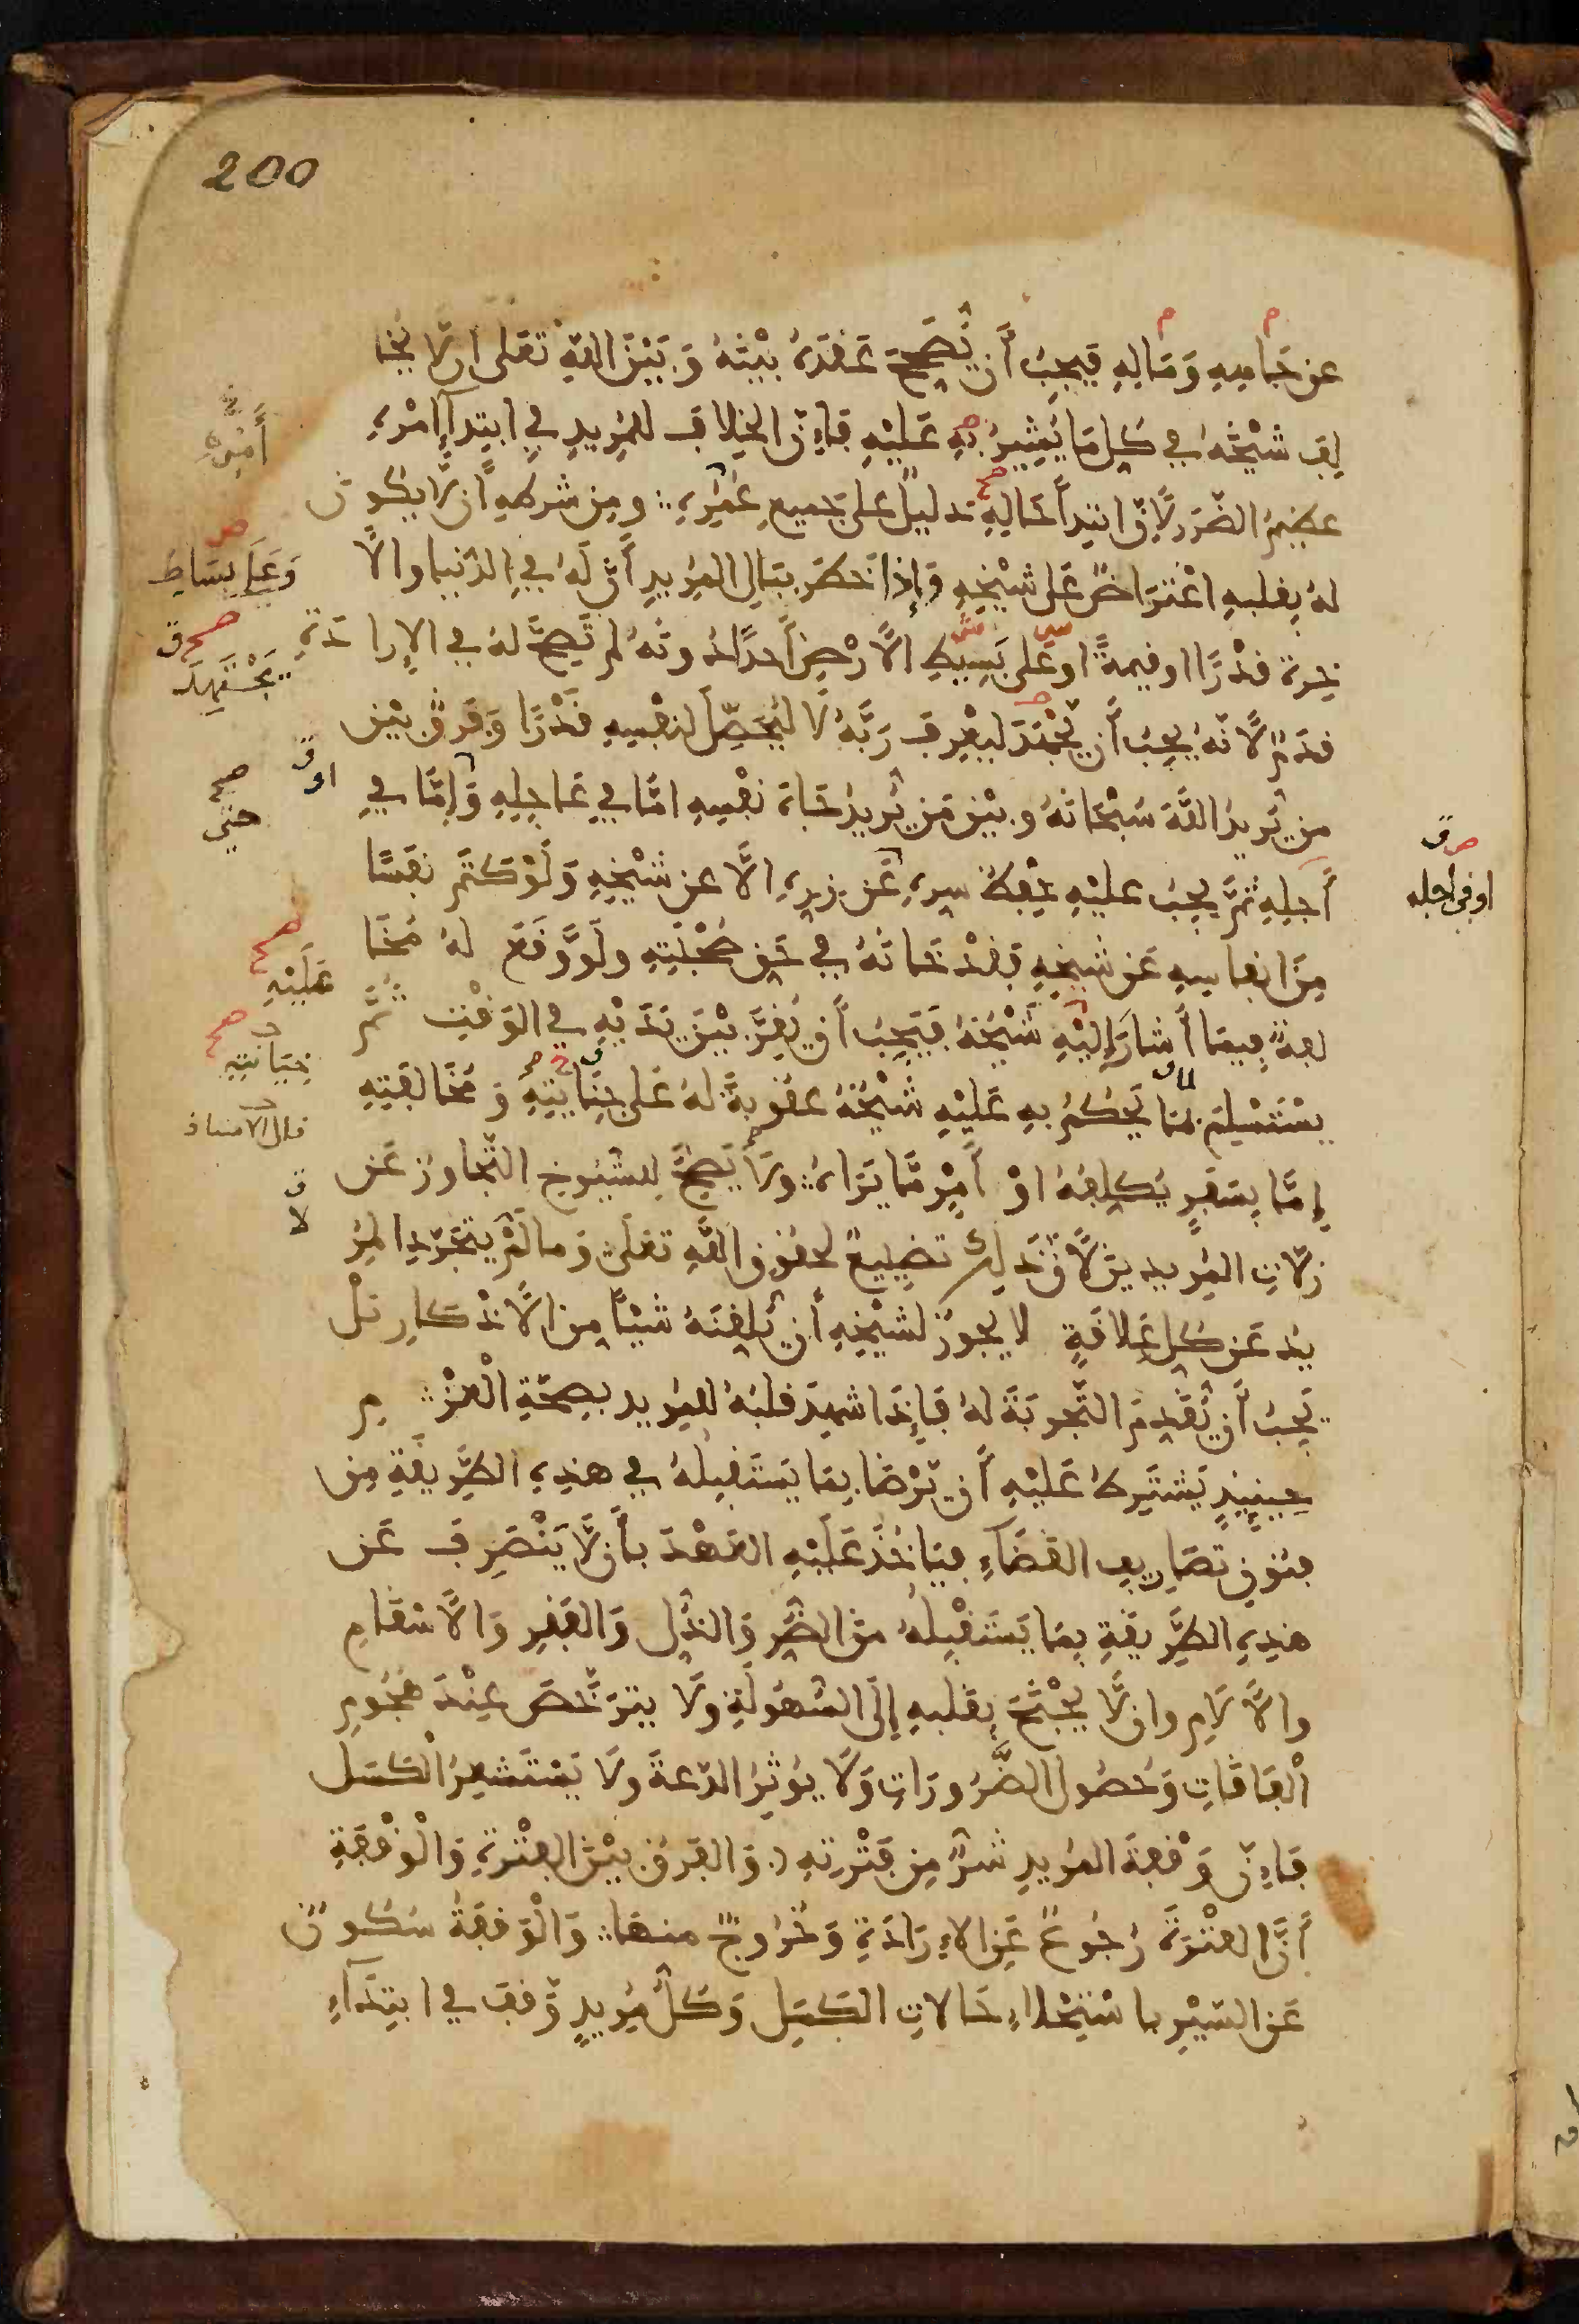 200
عن جاهه وماله فيجب أن يصحح عقده بينه وبين الله تعلى الا يخا
لف شيخه في كل ما يشير به عليه فإن الخلاف للمريد في ابتدآء امره
عظيم الضرر لأن ابتدأ حاله دليل على جميع عمره ومن شرطه أن لا يكون
له بقلبه اعتراض على شيخه وإذا خطر ببال المريد أن له في الدنيا والا
خرة قدرا او قيمة او على بسيط الارض أحدا دونه لم تصح له في الإرادة
قدم لأنه يجب أن يجتهد ليعرف ربه لا ليحصل لنفسه قدرا وفرق بين
من يريد الله سبحانه وبين من يريد جاه نفسه اما في عاجله وإما في
أجله ثم يجب عليه حفظ سره عن زره الا عن شيخه ولو كتم نفسا
من انفاسه عن شيخه فقد خانه في حق صحبته ولو وقع له مخا
لفة فيما أشار إليه شيخه فيجب أن يقر بين يديه في الوقت ثم
يستسلم لما يحكم به عليه شيخه عقوبة له على جنايته ومخالفته
إما بسفر يكلفه او أمر ما يراه ولا يصح للشيوخ التجاوز عن
زلات المريدين لأن ذلك تضييع لحقوق الله تعلى وما لم يتجرد المر
يد عن كل علاقة لا يجوز لشيخه أن يلقنه شيئا من الاذكار بل
يجب أن يقدم التجربة له فإذا شهد قلبه للمريد بصحة العزم
فحينئذ يشترط عليه أن يرضا بما يستقبله في هذه الطريقة من
فنون تصاريف القضآء فياخذ عليه العهد بأن لا ينصرف عن
هذه الطريقة بما يستقبله من الضر والذل والفقر والاسقام
والالام وان لا يجنح بقلبه إلى السهولة ولا يترخص عند هجوم
الفاقات وحصول الضرورات ولا يوثر الدعة ولا يستشعر الكسل
فإن وقفة المريد شر من فترته والفرق بين الفترة والوقفة
أن الفترة رجوع عن الإرادة وخروج منها والوقفة سكون
عن السير باستحلاء حالات الكسل وكل مريد وقف في ابتدآء
أمره
وعلى بساط
يجتهد
او
حتى
او في اجله
عليه
خيانته
قال الاستاذ
لا